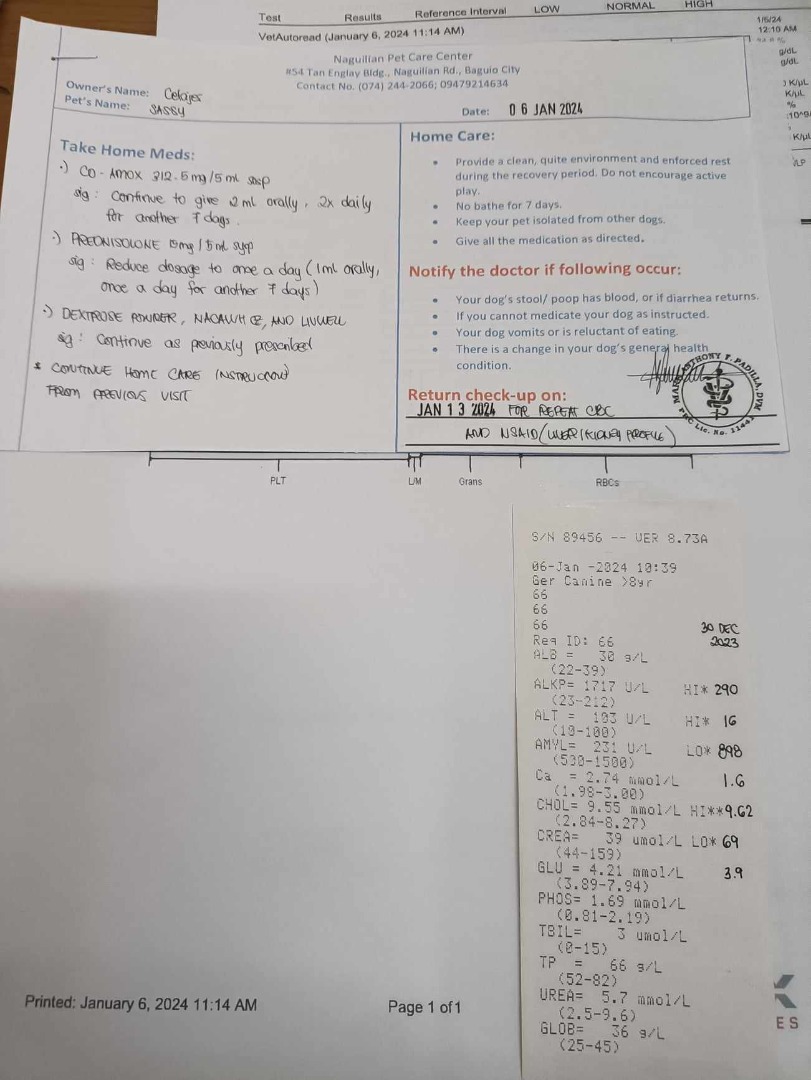 Test Results Reference Interval LOW NORMAL HIGH
VetAutoread (January 6, 2024 11:14 AM)
1/6/24
12:10 AM
g/dL
g/dL
K/µL
K/µL
%
K/µL
Naguilian Pet Care Center
#54 Tan Englay Bldg., Naguilian Rd., Baguio City
Contact No. (074) 244-2066; 09479214634
Owner's Name: Celajes
Pet's Name: SASSY
Date: 06 JAN 2024
Take Home Meds:
·) CO-AMOX 312.5mg/5ml susp
sig: Continue to give 2ml orally, 2x daily
for another 7 days.
·) PREDNISOLONE 15mg/5ml syrp
sig: Reduce dosage to once a day (1ml orally,
once a day for another 7 days)
·) DEXTROSE POWDER, AND LIVWELL
sig: Continue as previously prescribed
* CONTINUE HOME CARE INSTRUCTION
FROM PREVIOUS VISIT
Home Care:
• Provide a clean, quite environment and enforced rest
during the recovery period. Do not encourage active
play.
• No bathe for 7 days.
• Keep your pet isolated from other dogs.
• Give all the medication as directed.
Notify the doctor if following occur:
• Your dog's stool/ poop has blood, or if diarrhea returns.
• If you cannot medicate your dog as instructed.
• Your dog vomits or is reluctant of eating.
• There is a change in your dog's general health
condition.
ANTHONY F. PADILLA DVM
PRC Lic. No.
Return check-up on:
JAN 13 2024 FOR REPEAT CBC
AND NSAID (LIVER/KIDNEY PROFILE)
PLT L/M Grans RBCs
S/N 89456 -- VER 8.73A
06-Jan -2024 10:39
Ger Canine >8yr
66
66
66 30 DEC
Req ID: 66 2023
ALB = 30 g/L
(22-39)
ALKP= 1717 U/L HI* 290
(23-212)
ALT = 193 U/L HI* 16
(10-100)
AMYL= 231 U/L LO* 898
(500-1500)
Ca = 2.74 mmol/L 1.6
(1.98-3.00)
CHOL= 9.55 mmol/L HI**9.62
(2.84-8.27)
CREA= 39 umol/L LO* 69
(44-159)
GLU = 4.21 mmol/L 3.9
(3.89-7.94)
PHOS= 1.69 mmol/L
(0.81-2.19)
TBIL= 3 umol/L
(0-15)
TP = 66 g/L
(52-82)
UREA= 5.7 mmol/L
(2.5-9.6)
GLOB= 36 g/L
(25-45)
Printed: January 6, 2024 11:14 AM
Page 1 of 1
ES